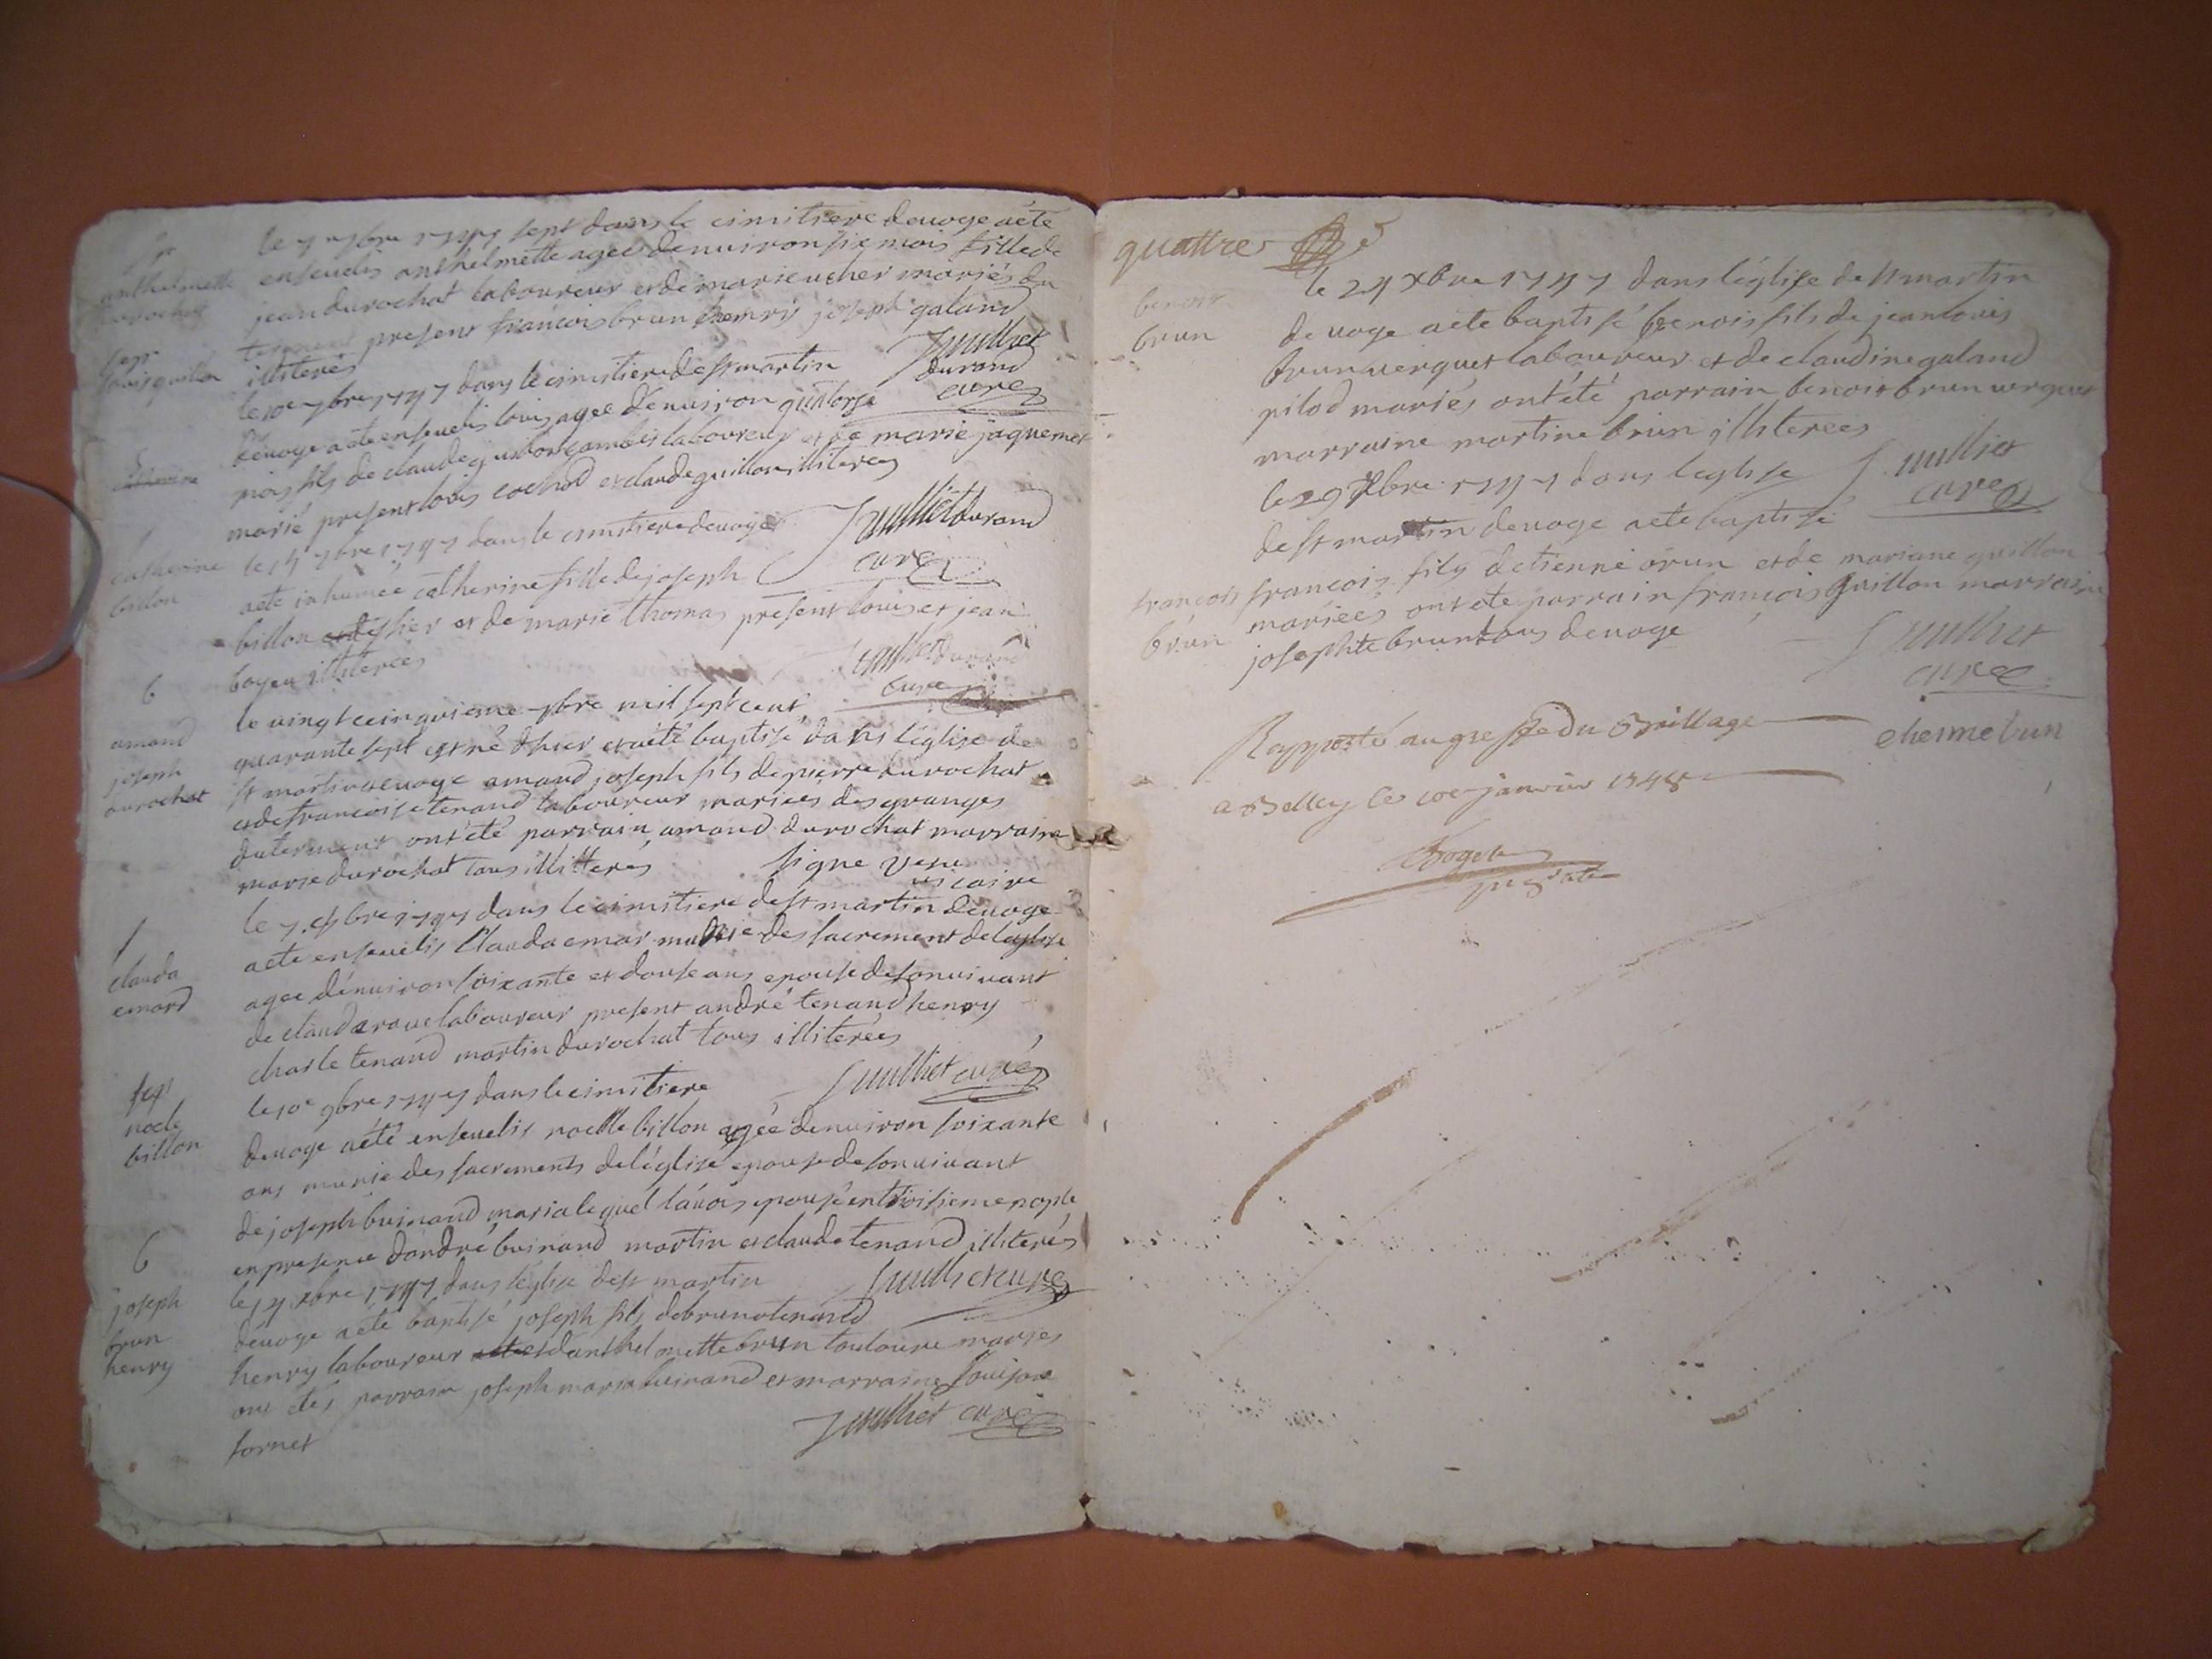 le 7 7bre 1747 sept dans le cimitiere de voge aété
anthelmette
durochat
enseuelis anthelmette agee denuiron six mois fille de
jean durochat laboureur et de marie ucher mariés du
present francois brun henry joseph galand
illiterés
Juilliet
durand
curé
louis guillon
le 10e 7bre 1747 dans le cimitiere de st martin
de uoge aeté enseuelis louis agee denuiron quatorse
mois fils de claude guillon laboureur et de marie jaquemet
marié present louis cochod et claude guillon illiterees
Juilliet durand
curé
catherine
billon
le 14 7bre 1747 dans le cimitiere de uoge
aeté inhumée catherine fille de joseph
billon et de marie thomas present louis et jean
boyeu illiterées
Juilliet durand
curé
6
amand
joseph
durochat
le uingt ceinquieme 7bre mil sept cent
quarante sept est né dhier et aété baptisé dans léglise de
st martin de uoge amand joseph fils de pierre durochat
et de francoise tenand laboureur mariees des granges
du terement ont été parrain amand durochat marraine
marie durochat tous illitteres
signe
vicaire
1
clauda
emard
le 7. 8bre 1747 dans le cimitiere de st martin de uoge
aeté enseuelis Clauda emar munie des sacrement de leglise
agee dénuiron soixante et douse ans epouse de son uiuant
de claude raue laboureur present andré tenand henry
charle tenand martin durochat tous illiterées
Juilliet curé
sep
noele
billon
le 10e 9bre 1747 dans le cimitiere
de uoge aété enseuelis noelle billon agée denuiron soixante
ans munie des sacrements de l'église epouse de son uiuant
de joseph buinand maria lequel lauois epousé en troisieme nopse
en presence dandré buinand martin et claude tenand illiterés
Juilliet curé
6
joseph
brun
henry
le 14 xbre 1747 dans léglise de st martin
de uoge aété baptisé joseph fils de bruno tenand
henry laboureur et danthelmette brun mariés
ont étés parrain joseph maria buinand et marraine
fornet
Juilliet curé
quattre
benoit
brun
le 24 xbre 1747 dans léglise de st martin
de uoge aeté baptisé benois fils de jean louis
brun uerguet laboureur et de claudine galand
pilod mariés ont été parrain benoit brun uerguet
marraine martine brun illiterees
Juilliet
curé
le 29 xbre 1747 dans leglise
de st martin de uoge aeté baptisé
francois
brun
francois fils détienne brun et de mariane guillon
mariées ont eté parrain francois guillon marraine
josephte brun tous de uoge
Juilliet
curé
Rapporté au greffe du Bailliage
a Belley le 10e janvier 1748
etienne brun